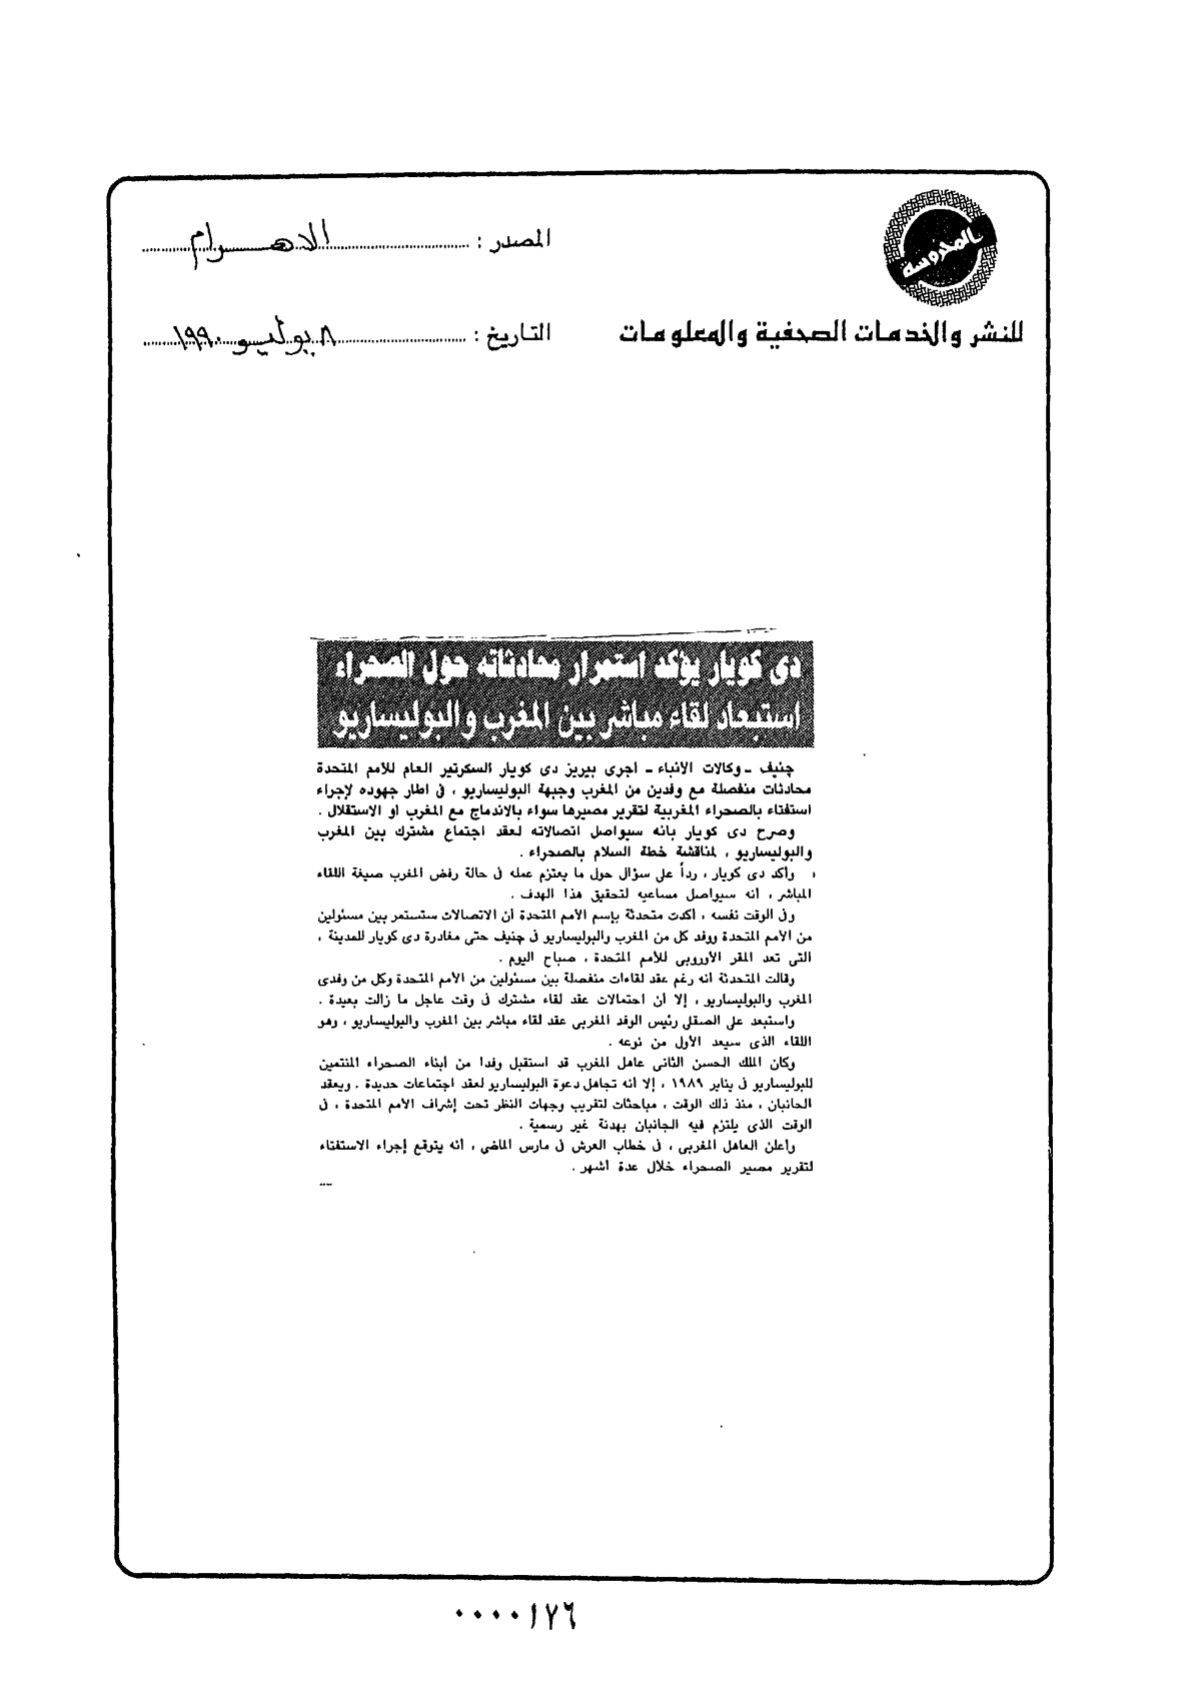 المحروسة
للنشر والخدمات الصحفية والمعلومات
المصدر : الاهرام
التاريخ : ٨ يوليو ١٩٩٠
دى كويار يؤكد استمرار محادثاته حول الصحراء
استبعاد لقاء مباشر بين المغرب والبوليساريو
جنيف ـ وكالات الأنباء ـ أجرى بيريز دى كويار السكرتير العام للأمم المتحدة
محادثات منفصلة مع وفدين من المغرب وجبهة البوليساريو ، فى اطار جهوده لإجراء
استفتاء بالصحراء المغربية لتقرير مصيرها سواء بالاندماج مع المغرب او الاستقلال .
وصرح دى كويار بأنه سيواصل اتصالاته لعقد اجتماع مشترك بين المغرب
والبوليساريو ، لمناقشة خطة السلام بالصحراء .
وأكد دى كويار ، رداً على سؤال حول ما يعتزم عمله فى حالة رفض المغرب صيغة اللقاء
المباشر ، أنه سيواصل مساعيه لتحقيق هذا الهدف .
وفى الوقت نفسه ، أكدت متحدثة بإسم الأمم المتحدة أن الاتصالات ستستمر بين مسئولين
من الأمم المتحدة ووفد كل من المغرب والبوليساريو فى جنيف حتى مغادرة دى كويار للمدينة ،
التى تعد المقر الأوروبى للأمم المتحدة ، صباح اليوم .
وقالت المتحدثة أنه رغم عقد لقاءات منفصلة بين مسئولين من الأمم المتحدة وكل من وفدى
المغرب والبوليساريو ، إلا أن احتمالات عقد لقاء مشترك فى وقت عاجل ما زالت بعيدة .
واستبعد على الصقلى رئيس الوفد المغربى عقد لقاء مباشر بين المغرب والبوليساريو ، وهو
اللقاء الذى سيعد الأول من نوعه .
وكان الملك الحسن الثانى عاهل المغرب قد استقبل وفدا من أبناء الصحراء المنتمين
للبوليساريو فى يناير ١٩٨٩ ، إلا أنه تجاهل دعوة البوليساريو لعقد اجتماعات جديدة . ويعقد
الجانبان ، منذ ذلك الوقت ، مباحثات لتقريب وجهات النظر تحت إشراف الأمم المتحدة ، فى
الوقت الذى يلتزم فيه الجانبان بهدنة غير رسمية .
وأعلن العاهل المغربى ، فى خطاب العرش فى مارس الماضى ، أنه يتوقع إجراء الاستفتاء
لتقرير مصير الصحراء خلال عدة أشهر .
٠٠٠٠١٧٦